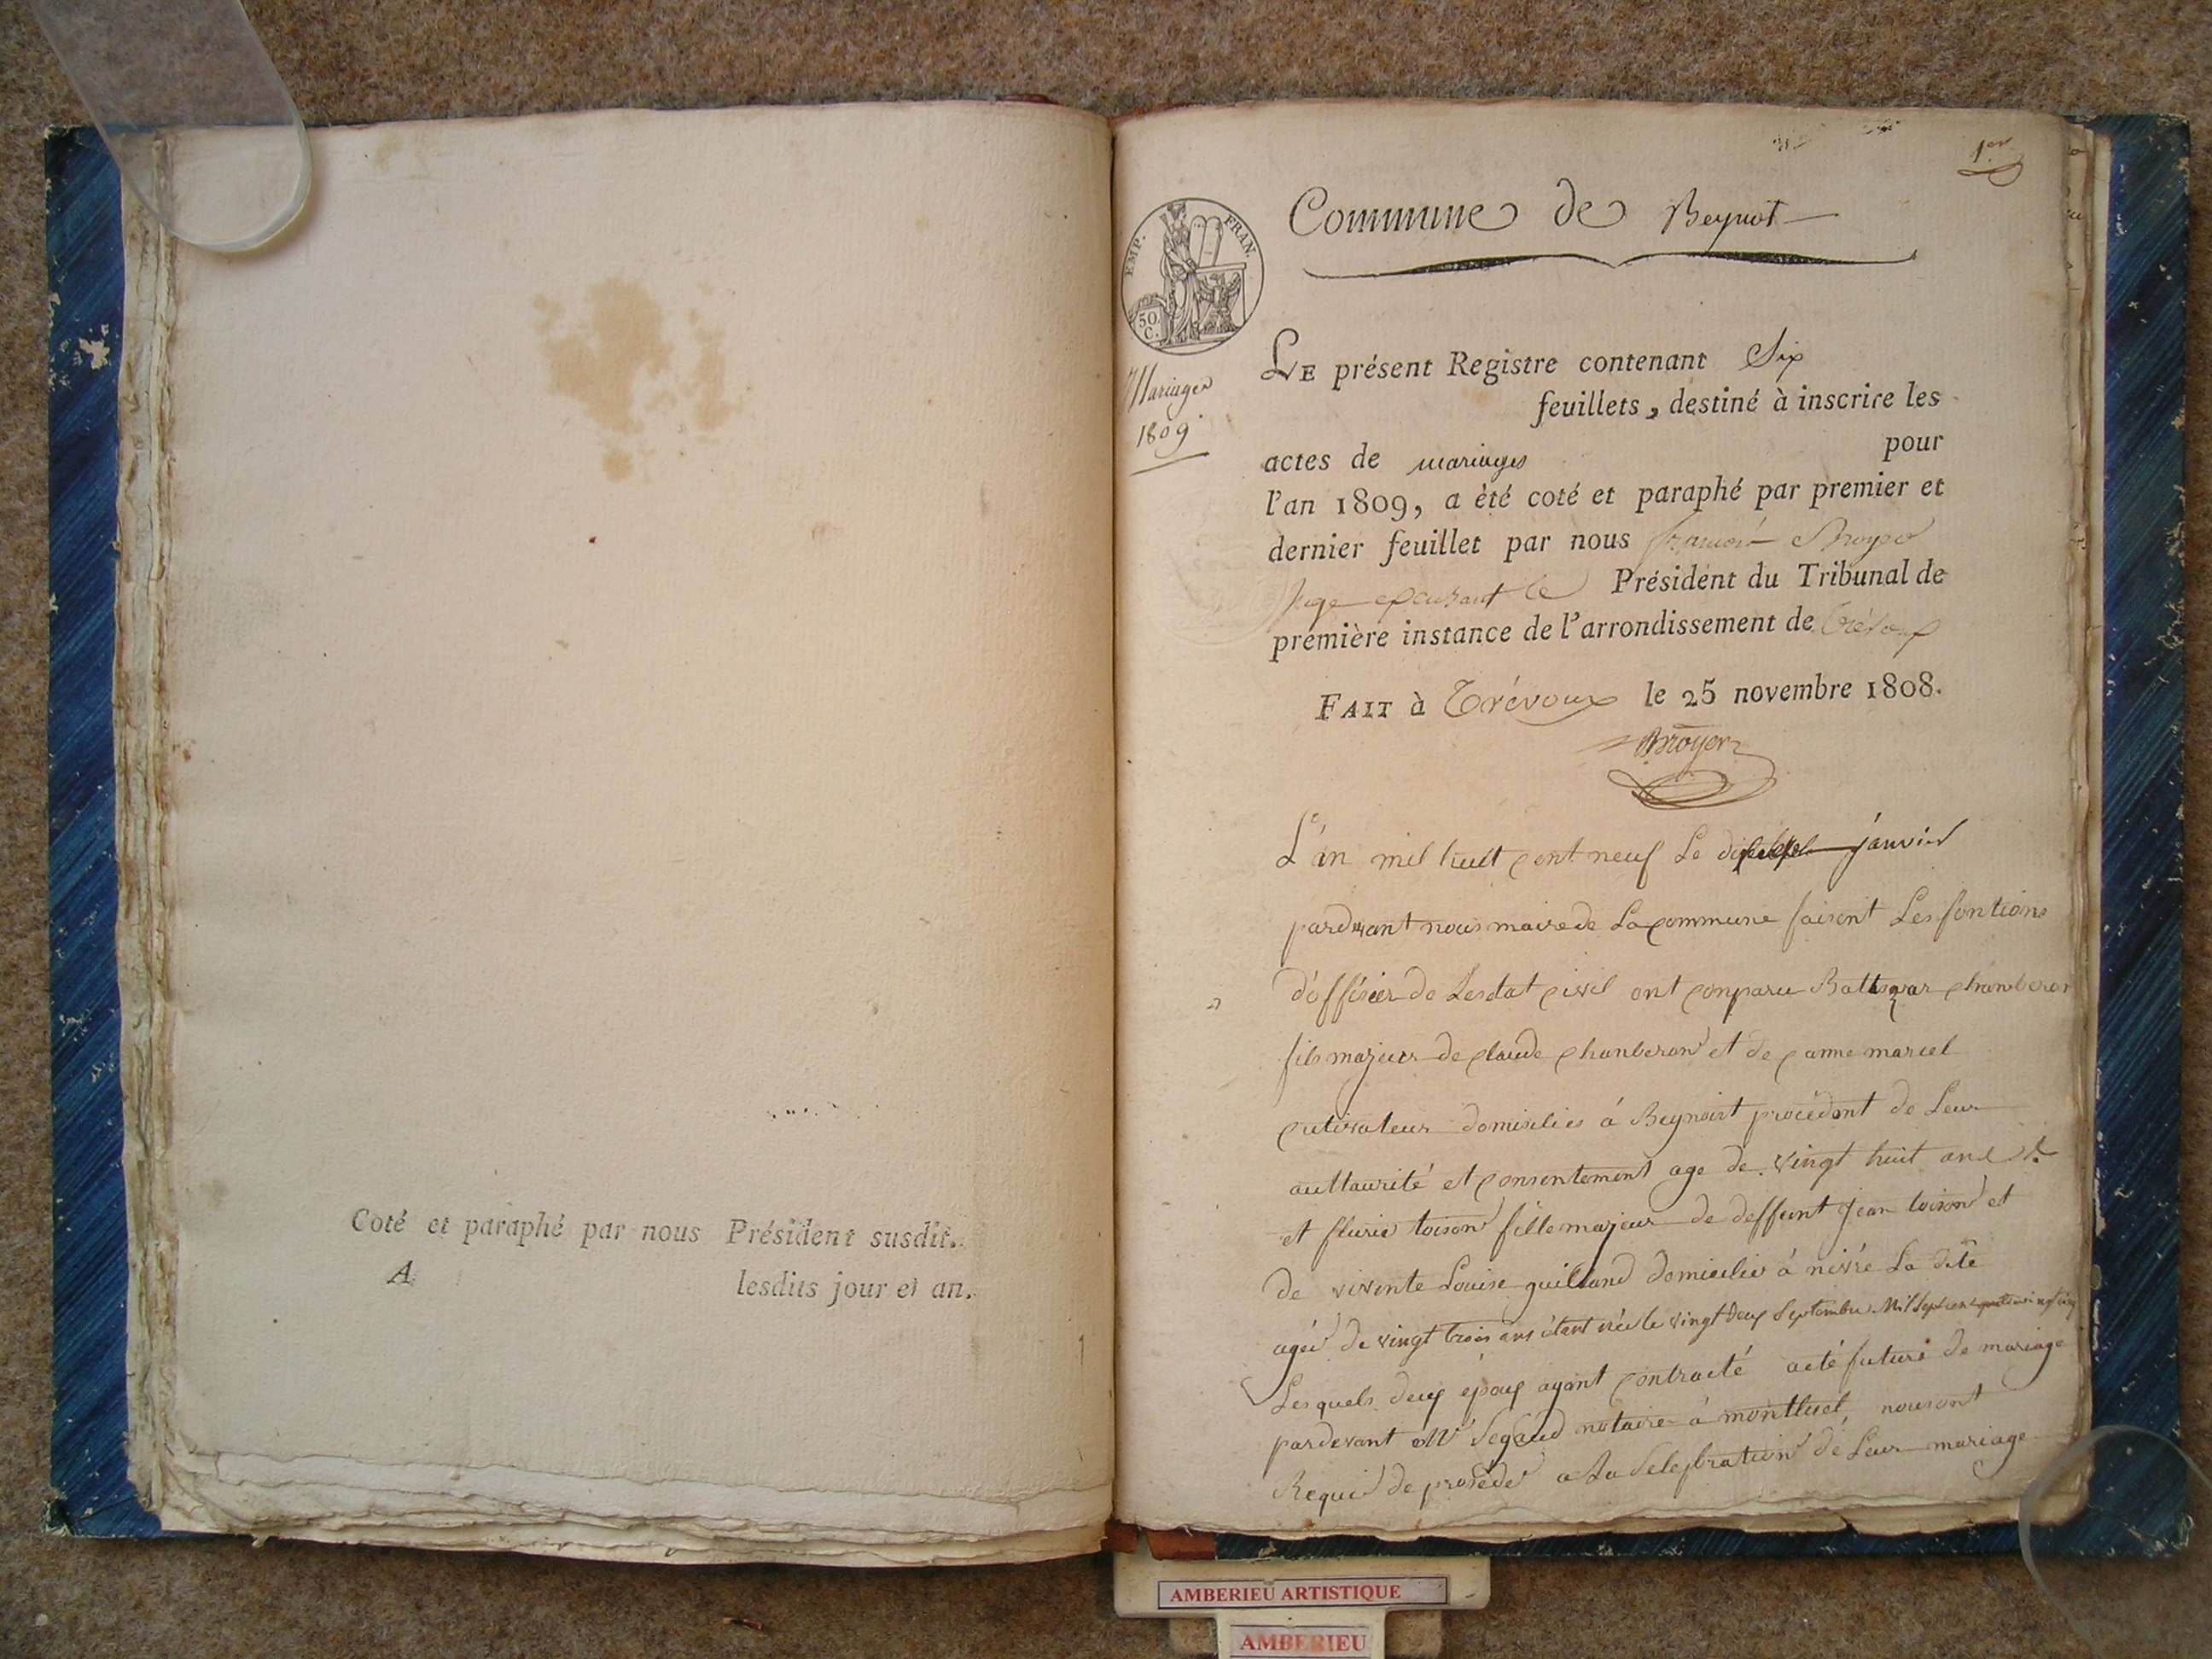 Coté et paraphé par nous Président susdit.
A lesdits jour et an.
1er
Commune de Beynost
EMP. FRAN.
50 C.
Mariages
1809
LE présent Registre contenant Six
feuillets, destiné à inscrire les
actes de mariages pour
l'an 1809, a èté coté et paraphé par premier et
dernier feuillet par nous françois
Juge exerçant le Président du Tribunal de
première instance de l'arrondissement de Trévoux
FAIT à Trévoux le 25 novembre 1808.
L'an mil huit cent neuf Le janvier
pardevant nous maire de La commune faisent Les fontions
d'offisier de Lesdat civil ont conparu Baltazar chanberon
fils majeur de claude chanberon et de anne marcel
cutivateur domisiliés à Beynost procedent de Leur
auttaurité et consentement age de vingt huit ans
et fleurie toison fille majeur de deffunt Jean toison et
de vivente Louise guilland domicilié à La dite
agée de vingt trois ans étant née le vingt deux Septembre Mil Sept cent quatre vingt cinq
Lesquels deux époux ayant contracté acte futuré de mariage
pardevant Mr Segaud notaire à montluel, nous ont
Requis de proséder a La selebration de Leur mariage
AMBERIEU ARTISTIQUE
AMBERIEU